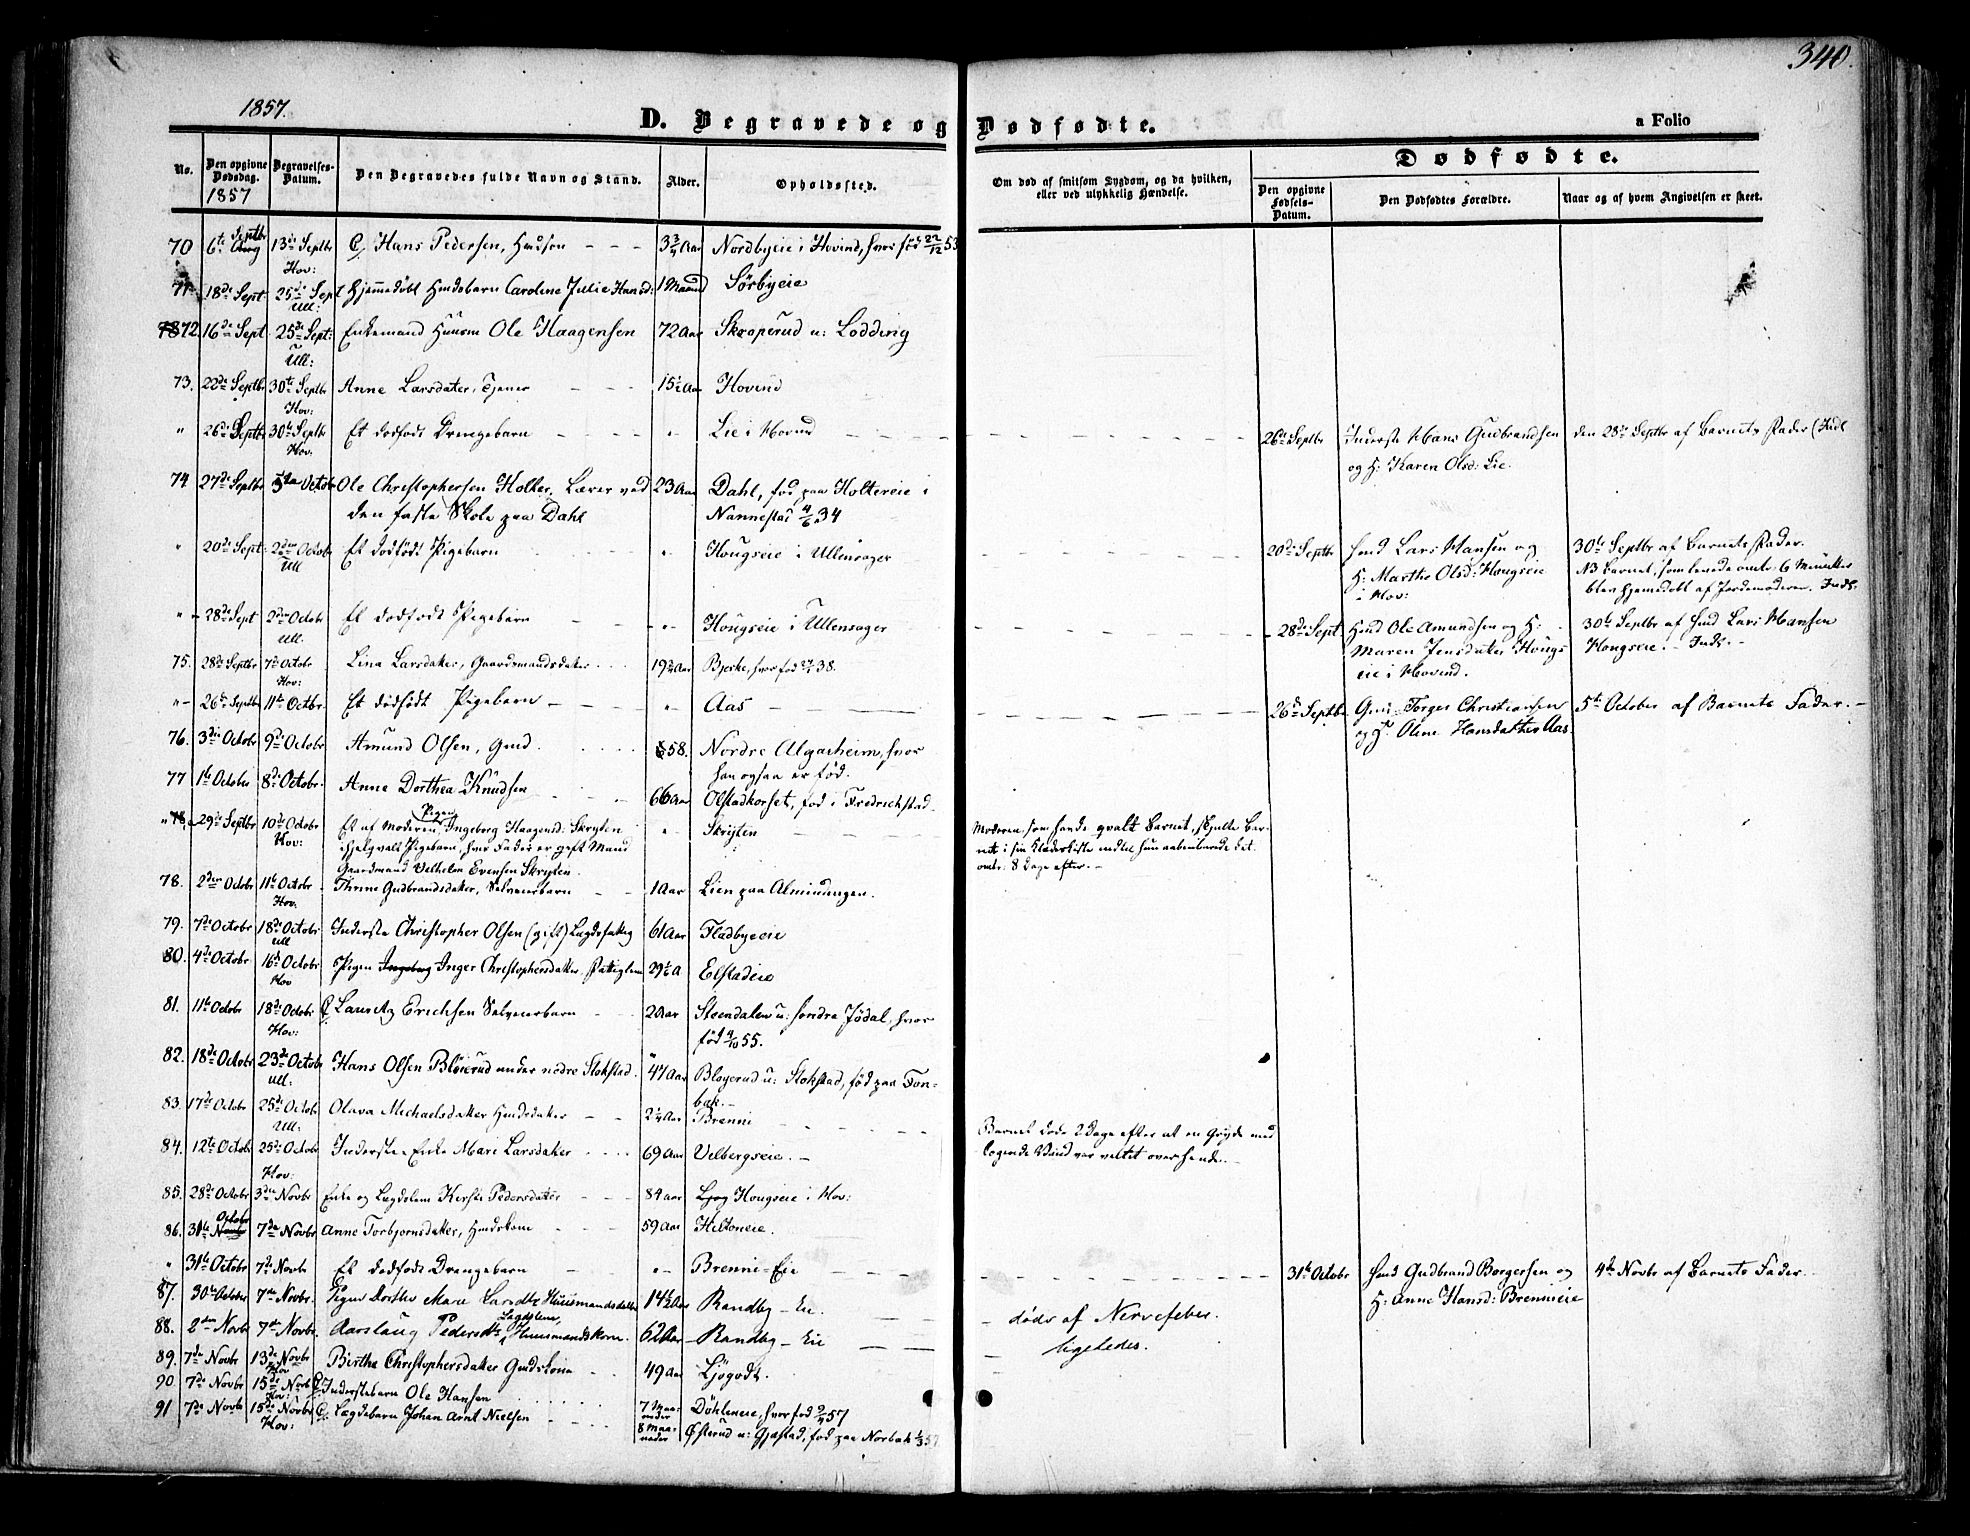 340.
1857.
D. Begravede og Dødfødte.
a Folio
No.
Den opgivne Dødsdag.
1857
Begravelses-Datum.
Den Begravedes fulde Navn og Stand.
Alder.
Opholdssted.
Om død af smitsom Sygdom, og da hvilken, eller ved ulykkelig Hændelse.
Dødfødte.
Den opgivne Fødsels-Datum.
Den Dødfødtes Forældre.
Naar og af hvem Angivelsen er skeet.
70 6te Septbr 13de Septbr Hov: Hans Pedersen, Hmdsøn 3 3/4 Aar Nordbyeie i Hovind, hvor fød 22/12 53
71 18de Sept 25de Sept Ull: Hjemmedøbt Hmdsbarn Caroline Julie Hansd: 1 Maaned Sørbyeie
72 16de Sept 25de Sept: Ull: Enkemand Huusm Ole Haagensen 72 Aar Skraperud u: Lodding
73. 22de Septbr 30te Septbr Hov: Anne Larsdater, Tjener 15 1/2 Aar Hovind
" 26de Septbr 30te Septbr Hov. Et dødfødt Drengebarn " Lie i Hovind 26de Septbr Inderste Hans Gudbrandsen den 28de Septbr af Barnets Fader (Indl
og H: Karen Olsd: Lie.
74 27de Septbr 5te Octobr Ole Christophersen Holter, Lærer ved 23 Aar Dahl, fød paa Holtereie i
den faste Skole paa Dahl Nannestad 4/6 34
" 20de Sept: 2den Octobr Ull Et dødfødt Pigebarn " Hougseie i Ullensager 20de Septbr Hmd Lars Hansen og 30te Septbr af Barnets Fader.
H: Marthe Olsd: Hougseie NB Barnet, som levede omtr. 6 Minutter
i Hov: blev hjemmedøbt af Jordemoderen. Indl.
" 28de Sept 2den Octobr Ull. Et dødfødt Pigebarn " Hougseie i Ullensager 28de Sept Hmd Ole Amundsen og H: 30te Septbr af Hmd Lars Hansen
Maren Jensdater Hougs Hougseie. Indl.
eie i Hovind.
75. 28de Septbr 7de Octobr Hov: Lina Larsdater, Gaardmandsdater 19 Aar Bjerke, hvor fød 38.
" 26de Septbr 11te Octbr. Et dødfødt Pigebarn " Aas 26de Septbr Gmd Torger Christiansen 5te October af Barnets Fader.
og H. Oline Hansdatter Aas.
76. 3die Octobr 9de Octobr Amund Olsen, Gmd. 58. Nordre Algarheim, hvor
han ogsaa er fød.
77 1te Octobr 8de Octobr. Anne Dorthea Knudsen 66 Aar Olstadkorset, fød i Fredrichstad
" 29de Septbr 10de Octobr Hov: Et af Moderen, Pigen Ingeborg Haagensd: Skryten " Skryten Moderen, som havde qvalt Barnet, skjulte Bar-
ihjelqvalt Pigebarn, hvis Fader er gift Mand net i sin Klædeskiste indtil hun aabenbarede det
Gaardmand Velhelm Evensen Skryten. omtr: 8 Dage efter.
78. 2den Octobr 11te Octobr Hov. Thrine Gudbrandsdater, Selveierbarn 1 Aar Lien paa Almindingen.
79. 7de Octobr 18de Octobr Ull Inderste Christopher Olsen (gift) Lægdsfattig 61 Aar Fladbyeeie
80. 4de Octobr 16de Octobr Hov Pigen Inger Christophersdater, Fattiglem 29 1/2 A Elstadeie
81. 11te Octobr 18de Octobr Hov: Lauritz Erichsen Selveierbarn 2 Aar Steendalen u: søndre Jødal, hvor
fød 4/10 55.
82. 18de Octobr 23de Octobr Ull: Hans Olsen Bløierud under nedre Slokstad. 47 Aar Bløyerud u: Slokstad, fød paa Ton-
bæk.
83. 17de Octobr 25de Octobr Ull: Olava Michaelsdater Hmdsdater 2 1/4 Aar Brenni Barnet døde 2 Dage efter at en Gryde med
kogende Vand var veltet over hende.
84. 12te Octobr 25de Octobr Hov: Inderste-Enke Mari Larsdater 69 Aar Velbergseie.
85. 28de Octobr 3die Novbr Enke og Lægdslem Kirsti Pedersdater 84 aar Ljøg Hougseie i Hov:
86. 31te Octobr 7de Novbr Anne Torbjørnsdater, Hmdskone 59 Aar Hiltoneie.
" 31te Octobr 7de Novbr Et dødfødt Drengebarn " Brenni-Eie 31te Octobr Hmd Gudbrand Borgersen og 4de Novbr af Barnets Fader.
H: Anne Hansd: Brennieie
87. 30te October 7de Novbr. Pigen Dorthe Marie Larsdtr Huusmandsdatter 14 1/2 Aar Randby-Eie. døde af Nervefeber.
88. 2den Novbr 7de Novbr. Aarslaug Pedersdtr Lægdslem, Huusmandskone. 62 Aar Randby-Eie ligeledes.
89. 7de Novbr 13de Novbr Birthe Christophersdatter Gmdskone 49 Aar Ljøgodt.
90 7de Novbr 15de Novbr Hov: Inderstebarn Ole Hansen 7 Maaneder Døhleneie, hvor fød 57
91 7de Novbr 15de Novbr Hov: Lægdebarn Johan Arnt Nielsen 8 Maaneder Østerud u: Gjæstad, fød paa Norbak 1/3 57